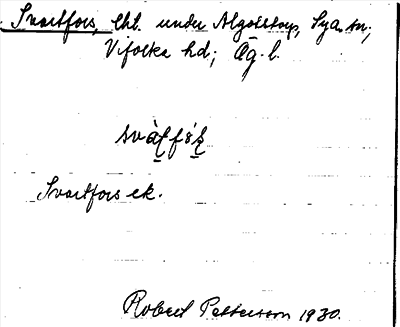 Svartfors, lht. under Algotstorp, Sya sn,
Vifolka hd; Ög. l.
svàʈfóʂ
Svartfors ek.
Robert Petterson 1930.